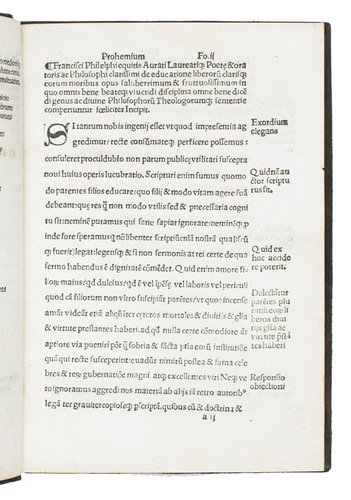 Prohemium Fo.ij
¶Francisci Philelphi equitis Aurati Laureatiq; Poetę & ora
toris ac Philosophi clarissimi de educatione liberorū clarisq;
eorum moribus opus saluberrimum & fructuosissimum in
quo omnis bene beateq; viuendi disciplina omne bene dicē
di genus ac diuine Philosophorū Theologorumq; sententie
comperiuntur fœliciter Incipit.
SI tantum nobis ingenij esset vt quod impresentia ag
gredimur/ recte consūmateq; perficere possemus:
consuleret proculdubio non parum publicę vtilitati suscepta
noui huius operis lucubratio. Scripturi enim sumus quomo
do parentes filios educare/quo filij & modo vitam agere suā
debeant: que res q̄ non modo vtilis sed & pnecessaria cogni
tu sit: neminē putamus qui sane sapiat ignorare: neminēq; p
inde fore speramus q̄ nō libenter scriptiūculā nostrā qualiscū
q; fuerit legat: legensq; & si non sermonis at rei certe de qua
sermo habendus ē dignitatē cōmēdet. Quid enim amore fi
liorū: quid maius/dulciusq; qd' ē vel īpēsę vel laboris vel pericu
li quod cā filiorum non vltro suscipiāt parētes/vt quos īncense
amāt videāt etiā abijs int̄er cęteros mortales & diuitijs & glīa
& virtute prestantes haberi. ad qd' nulla certe cōmodiore āt
aptiore via pueniri pōt q̄ sobria & sācta proba eorū īnstitutiōe
quā qui recte susceperint: euadūt nimirū postea & fama cele
bres & reip. gubernatiōe magni atq; excellentes viri Neq; ve
ro ignoramus aggredi nos matertā ab alijs iā retro autorib'
legā ter grauiter copioseq; pscriptā. quibus cū & doctrina &
Exordium
elegans
Quidnā au
ctor scriptu
rus sit.
Quid ex
hoc accide
re poterit.
Delectātur
virtute pstā
tes haberi
Responsio
obiectioni
a ij